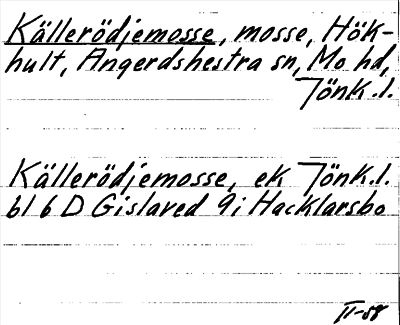 Källerödjemosse, mosse, Hök-
hult, Angerdshestra sn, Mo hd,
Jönk.l.
Källerödjemosse, ek Jönk.l.
bl 6 D Gislaved 9i Hacklarsbo
II-58